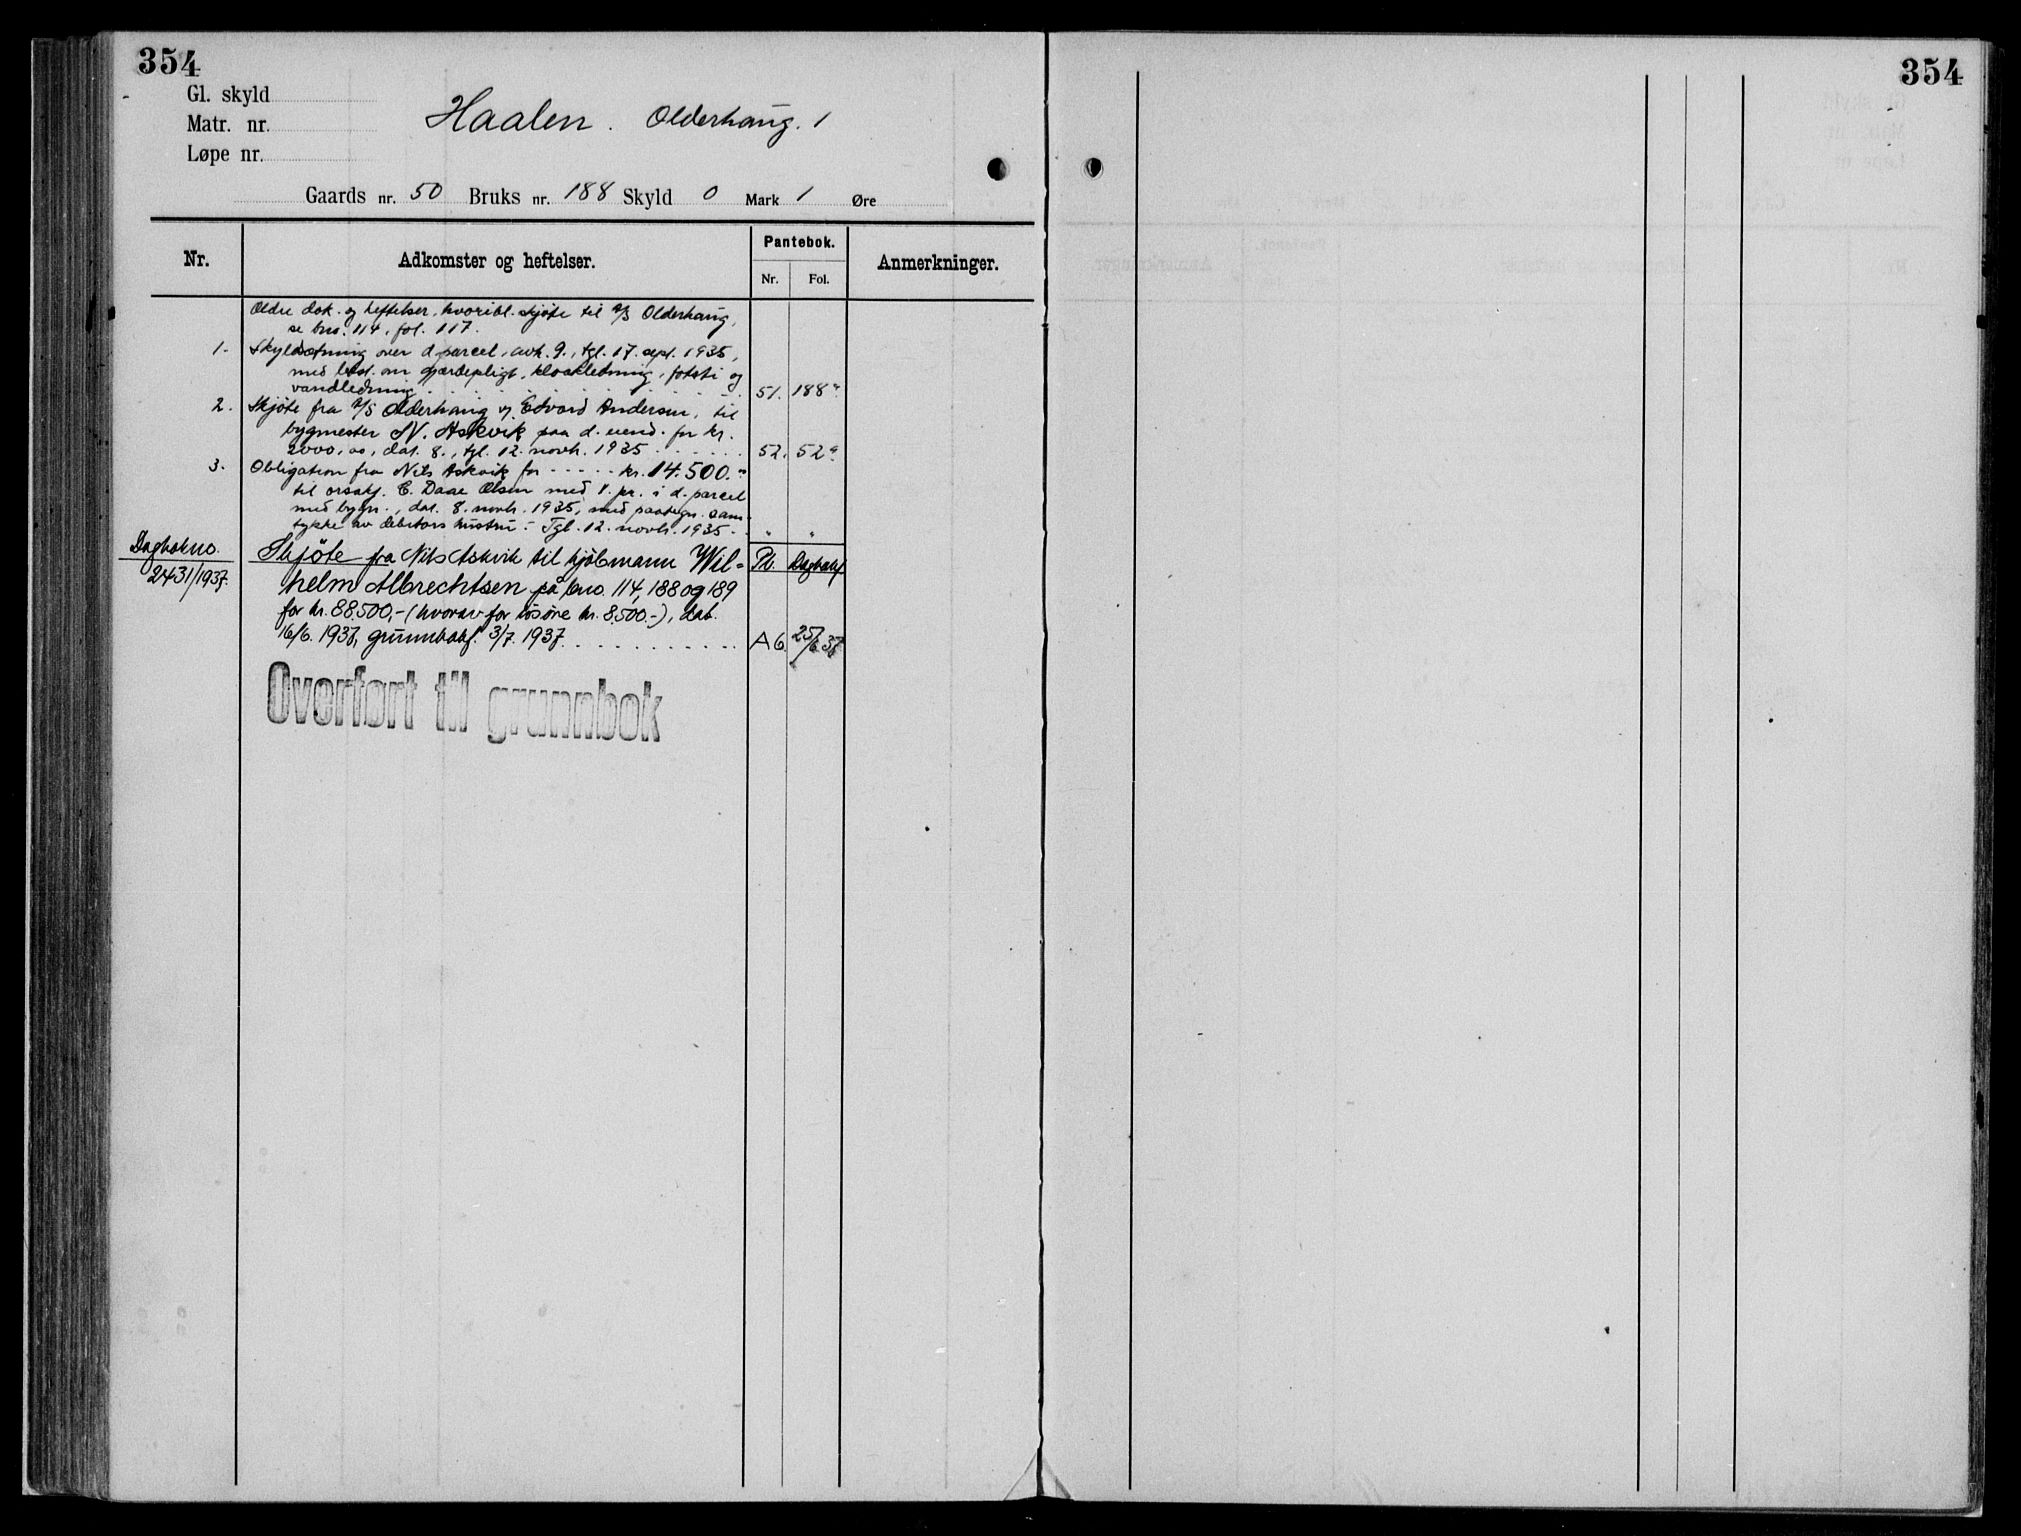 354
354
Gl. skyld
Matr. nr.
Løpe nr.
Haalen. Olderhaug. 1
Gaards nr. 50 Bruks nr. 188 Skyld 0 Mark 1 Øre
Nr.
Adkomster og heftelser.
Pantebok.
Nr.
Fol.
Anmerkninger.
Ældre dok. og heftelser, hvoribl. skjöte til A/S Olderhaug,
se bno. 114, fol. 117.
1. Skyldsetning over d. parcel, avh. 9., tgl. 17. sept. 1935,
med best. om gjærdepligt, kloakledning, fotsti og
vandledning. 51. 188
2. Skjöte fra A/S Olderhaug v/ Edvard Andersen, til
bygmester N. Askvik paa d. eiend. for kr.
2000,00, dat. 8., tgl. 12. novb. 1935 52. 52
3. Obligation fra Nils Askvik for kr. 14.500.
til orsakf. C. Daae Olsen med 1. pr. i d. parcel
med bygn., dat. 8. novb. 1935, med paategn. sam-
tykke av debitors hustru. Tgl. 12. novb. 1935. " "
Dagbokno.
2431/1937.
Skjöte fra Nils Askvik til kjöbmann Wil-
Pb. Dagbokf
helm Albrechtsen på bno. 114, 188 og 189
for kr. 88.500,- (hvorav for lösöre kr. 8.500.-), dat.
16/6. 1937, grunnbokf. 3/7. 1937. A6. 25/6 37
Overført til grunnbok